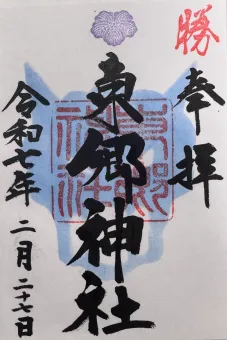 勝
奉拝
東郷神社
東郷神社
令和七年 二月二十七日